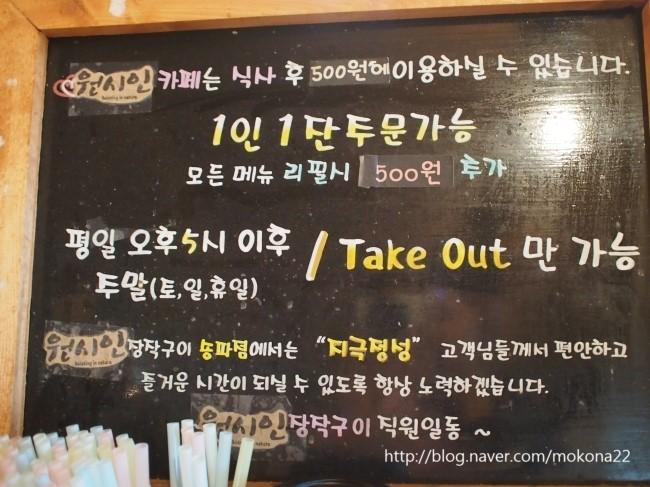 원시인 카페는 식사 후 500원에 이용하실 수 있습니다.
1인 1잔 주문가능
모든 메뉴 리필시 500원 추가
평일 오후 5시 이후 / Take Out 만 가능
주말(토,일,휴일)
원시인 장작구이 송파점에서는 "지극정성" 고객님들께서 편안하고
즐거운 시간이 되실 수 있도록 항상 노력하겠습니다.
원시인 장작구이 직원일동 ~
http://blog.naver.com/mokona22